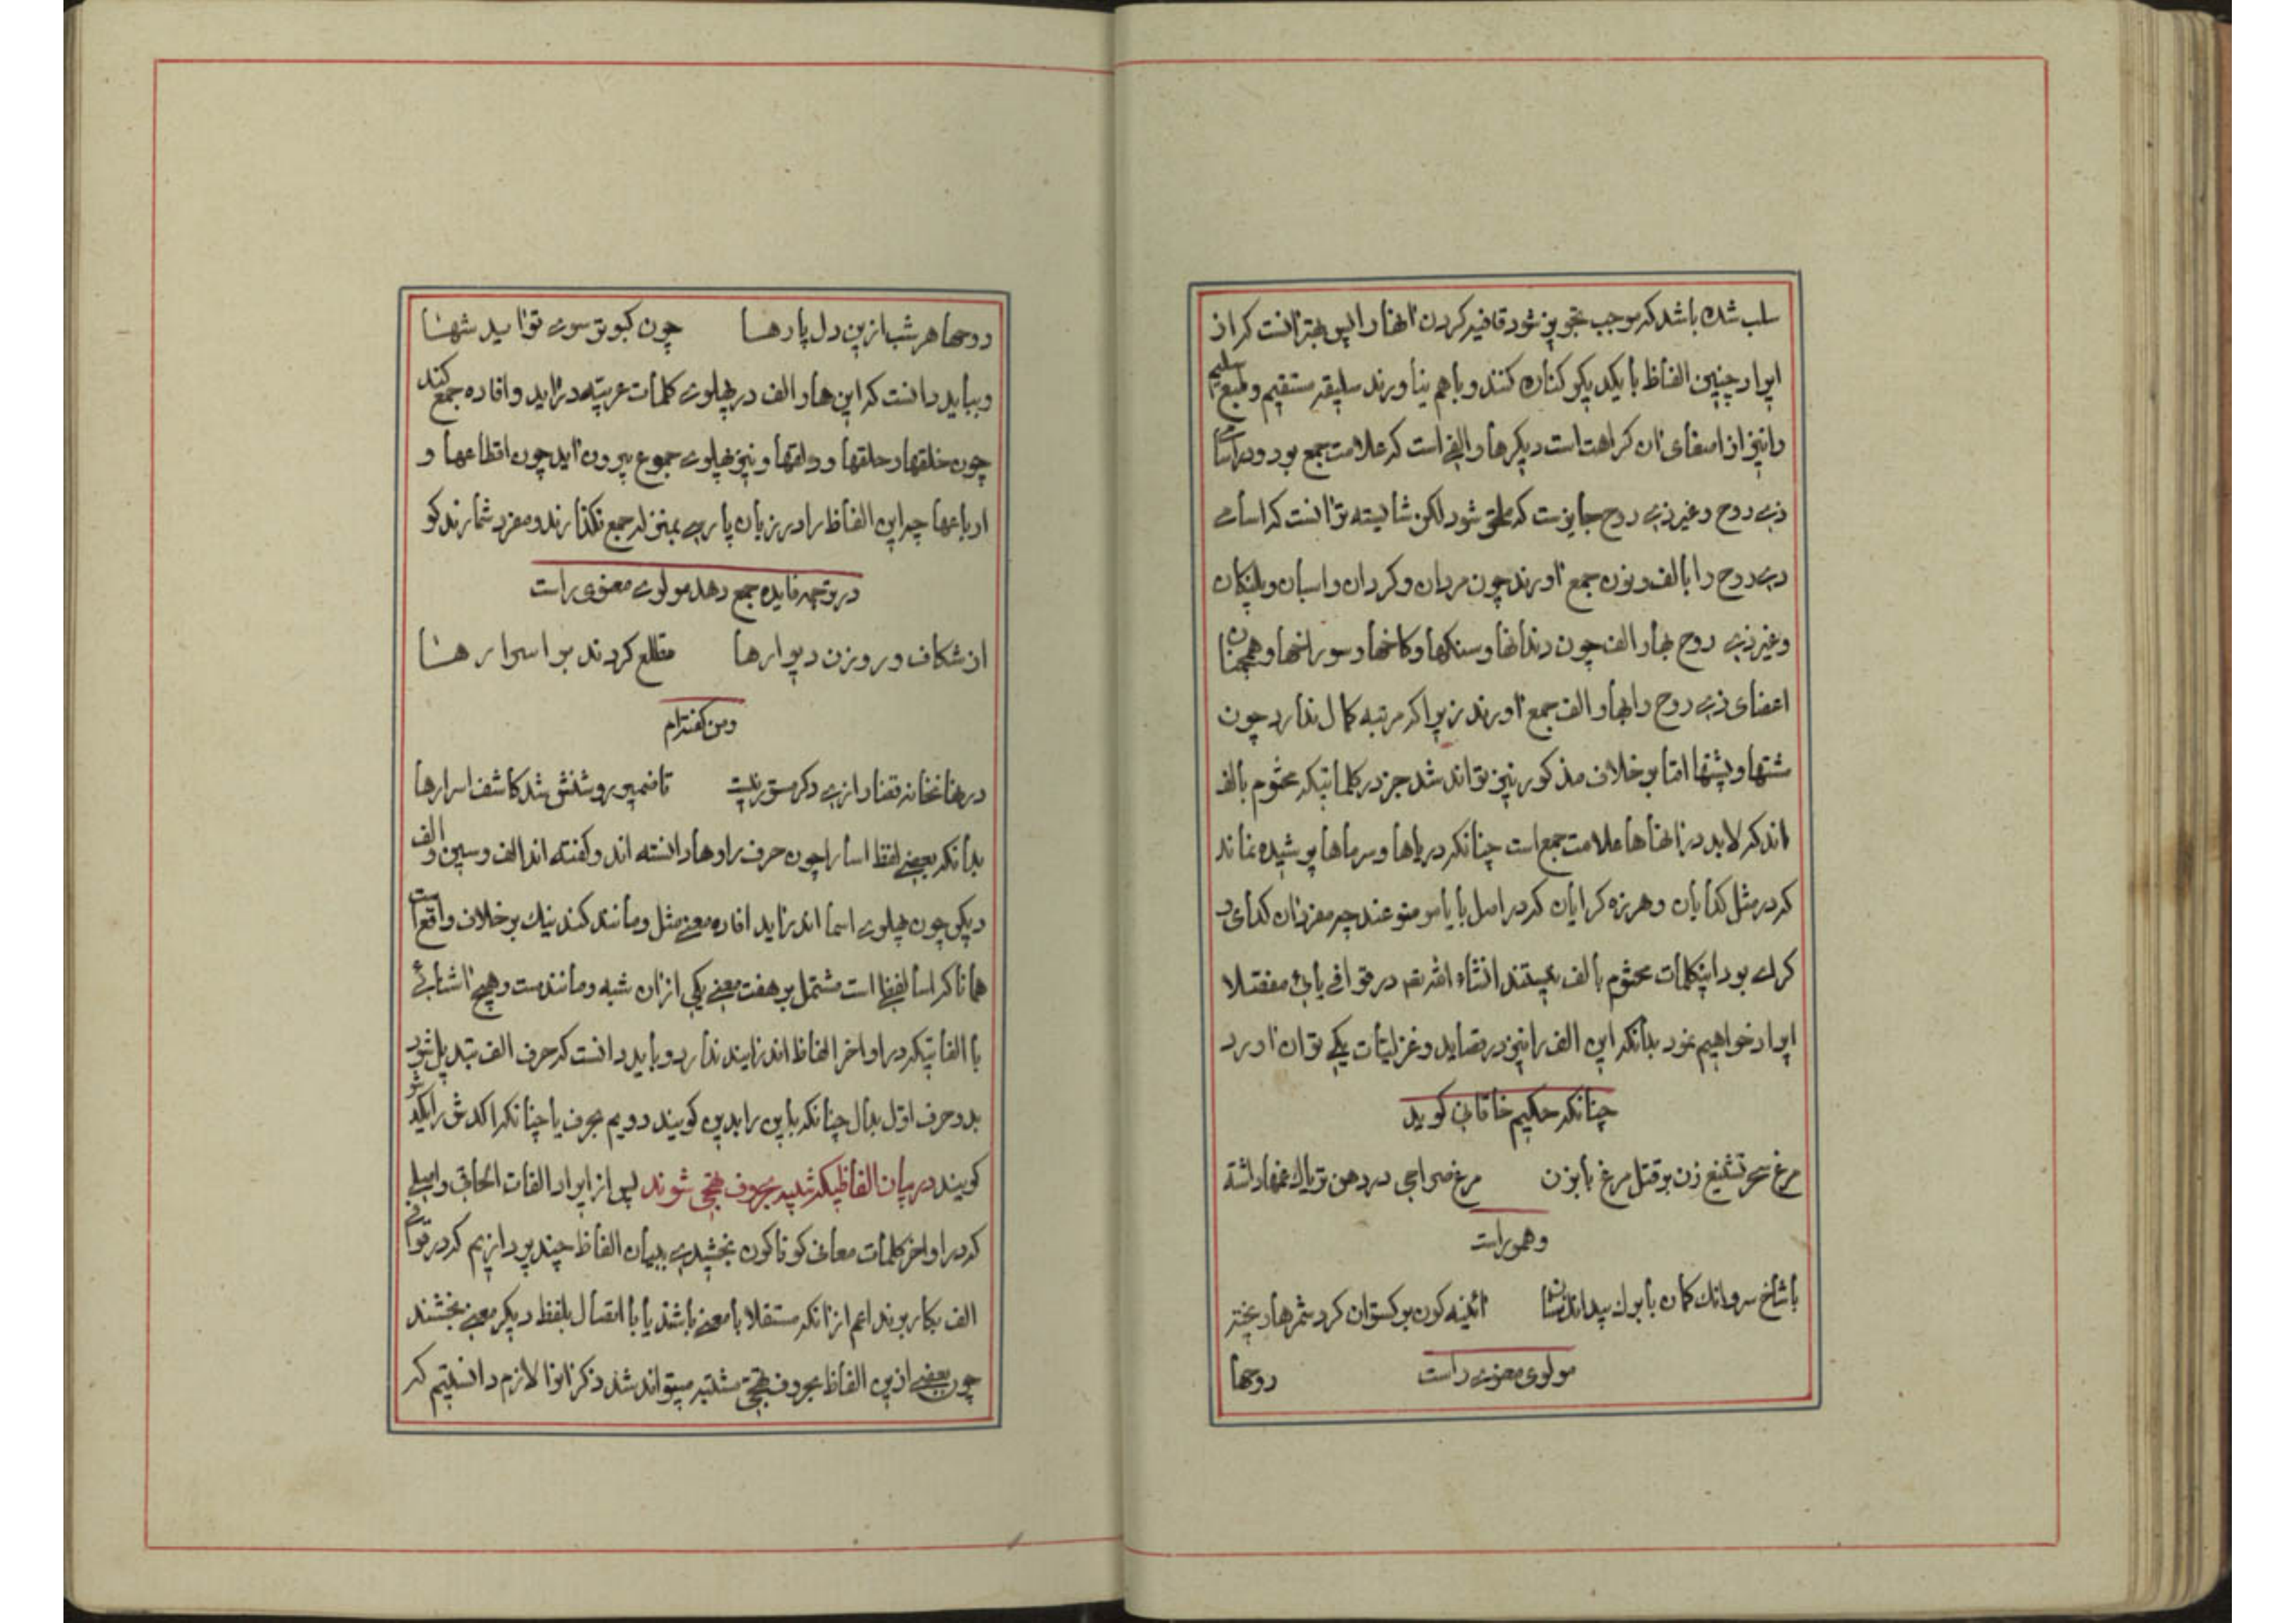 سلب شده باشد که موجب تجویز شود قافیه کردن آنها را پس بهتر آنست که از
ایراد چنین الفاظ با یکدیگر کناره کنند و با هم نیاورند سلیقه مستقیم و طبع سلیم
را نیز از اصغای آن کراهت است دیگر ها و الفی است که علامت جمع بود و در اسامی
ذی روح و غیر ذی روح جایزست که ملحق شود لکن شایسته تر آنست که اسامی
ذی روح را بالف و نون جمع آورند چون مردان و کردان و اسبان و پلنکان
و غیر ذی روح بها و الف چون دندانها و سنکها و کاخها و سوراخها و همچنان
اعضای ذی روح را بها و الف جمع آورند زیرا که مرتبه کمال ندارد چون
مشتها و پشتها اما بر خلاف مذکور نیز تواند شد جز در کلماتیکه مختوم بالف
اند که لابد در آنها ها علامت جمع است چنانکه دریاها و سرماها پوشیده نماند
که در مثل کدایان و هرزه کرایان که در اصل با یا موضوعند چه مفرد آن کدای و
کرای بود اینکلمات مختوم بالف نیستند انشاء الله تعم در قوافی یائی مفصلا
ایراد خواهیم نمود بدانکه این الف را نیز در قصاید و غزلیات یکی توان آورد
چنانکه حکیم خاقانی کوید
مرغ سحر تشنیع زن بر قتل مرغ بابزن مرغ صراحی در دهن تریاک غمها داشته
و هموراست
با شاخ سرو انک کمان با برک بید انک سنان آئینه کون برکستوان کرد شمرها ریخته
مولوی معنوی راست روحها
روحها هر شب ازین دل پارها چون کبوتر سوی تو آید شها
و بباید دانست که این ها و الف در پهلوی کلمات عربیه در آید و افاده جمع کند
چون خلقها و حلقها و دلقها و نیز پهلوی جموع بیرون آید چون اقطاعها و
ارباعها چه این الفاظ را در زبان پارسی بمنزله جمع نکذارند و مفرد شمارند کو
در بوجه فایده جمع دهد مولوی معنوی راست
از شکاف و روزن دیوارها مطلع کردند بر اسرارها
و من کفته‌ام
در نهانخانه قضا رازی دکر مستور نیست تا ضمیر روشنش شد کاشف اسرارها
بدانکه بعضی لفظ اسا را چون حرف را و ها دانسته اند و کفته اند الف و سین و الف
دیکر چون پهلوی اسما اندر آید افاده معنی مثل و مانند کند نیک بر خلاف واقع است
همانا که اسا لفظی است مشتمل بر هفت معنی یکی از آن شبه و مانندست و هیچ آشنائی
با الفاتیکه در اواخر الفاظ اندر آیند ندارد و باید دانست که حرف الف تبدیل شود
بدو حرف اول بدال چنانکه باین را بدین کویند دویم بحرف یا چنانکه اکدش را یکدش
کویند در بیان الفاظیکه شبیه بحروف تهجی شوند پس از ایراد الفات الحاقی و اصلی
که در اواخر کلمات معانی کوناکون بخشیدی ببیان الفاظ چند پردازیم که در قوافی
الف بکار بوند اعم از آنکه مستقلا با معنی باشد یا باتصال بلفظ دیکر معنی بخشند
چون بعضی ازین الفاظ بحروف تهجی مشتبه میتواند شد ذکر انرا لازم دانستیم که